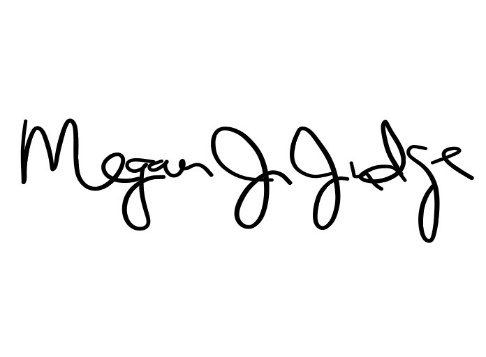 Megan J. Judge